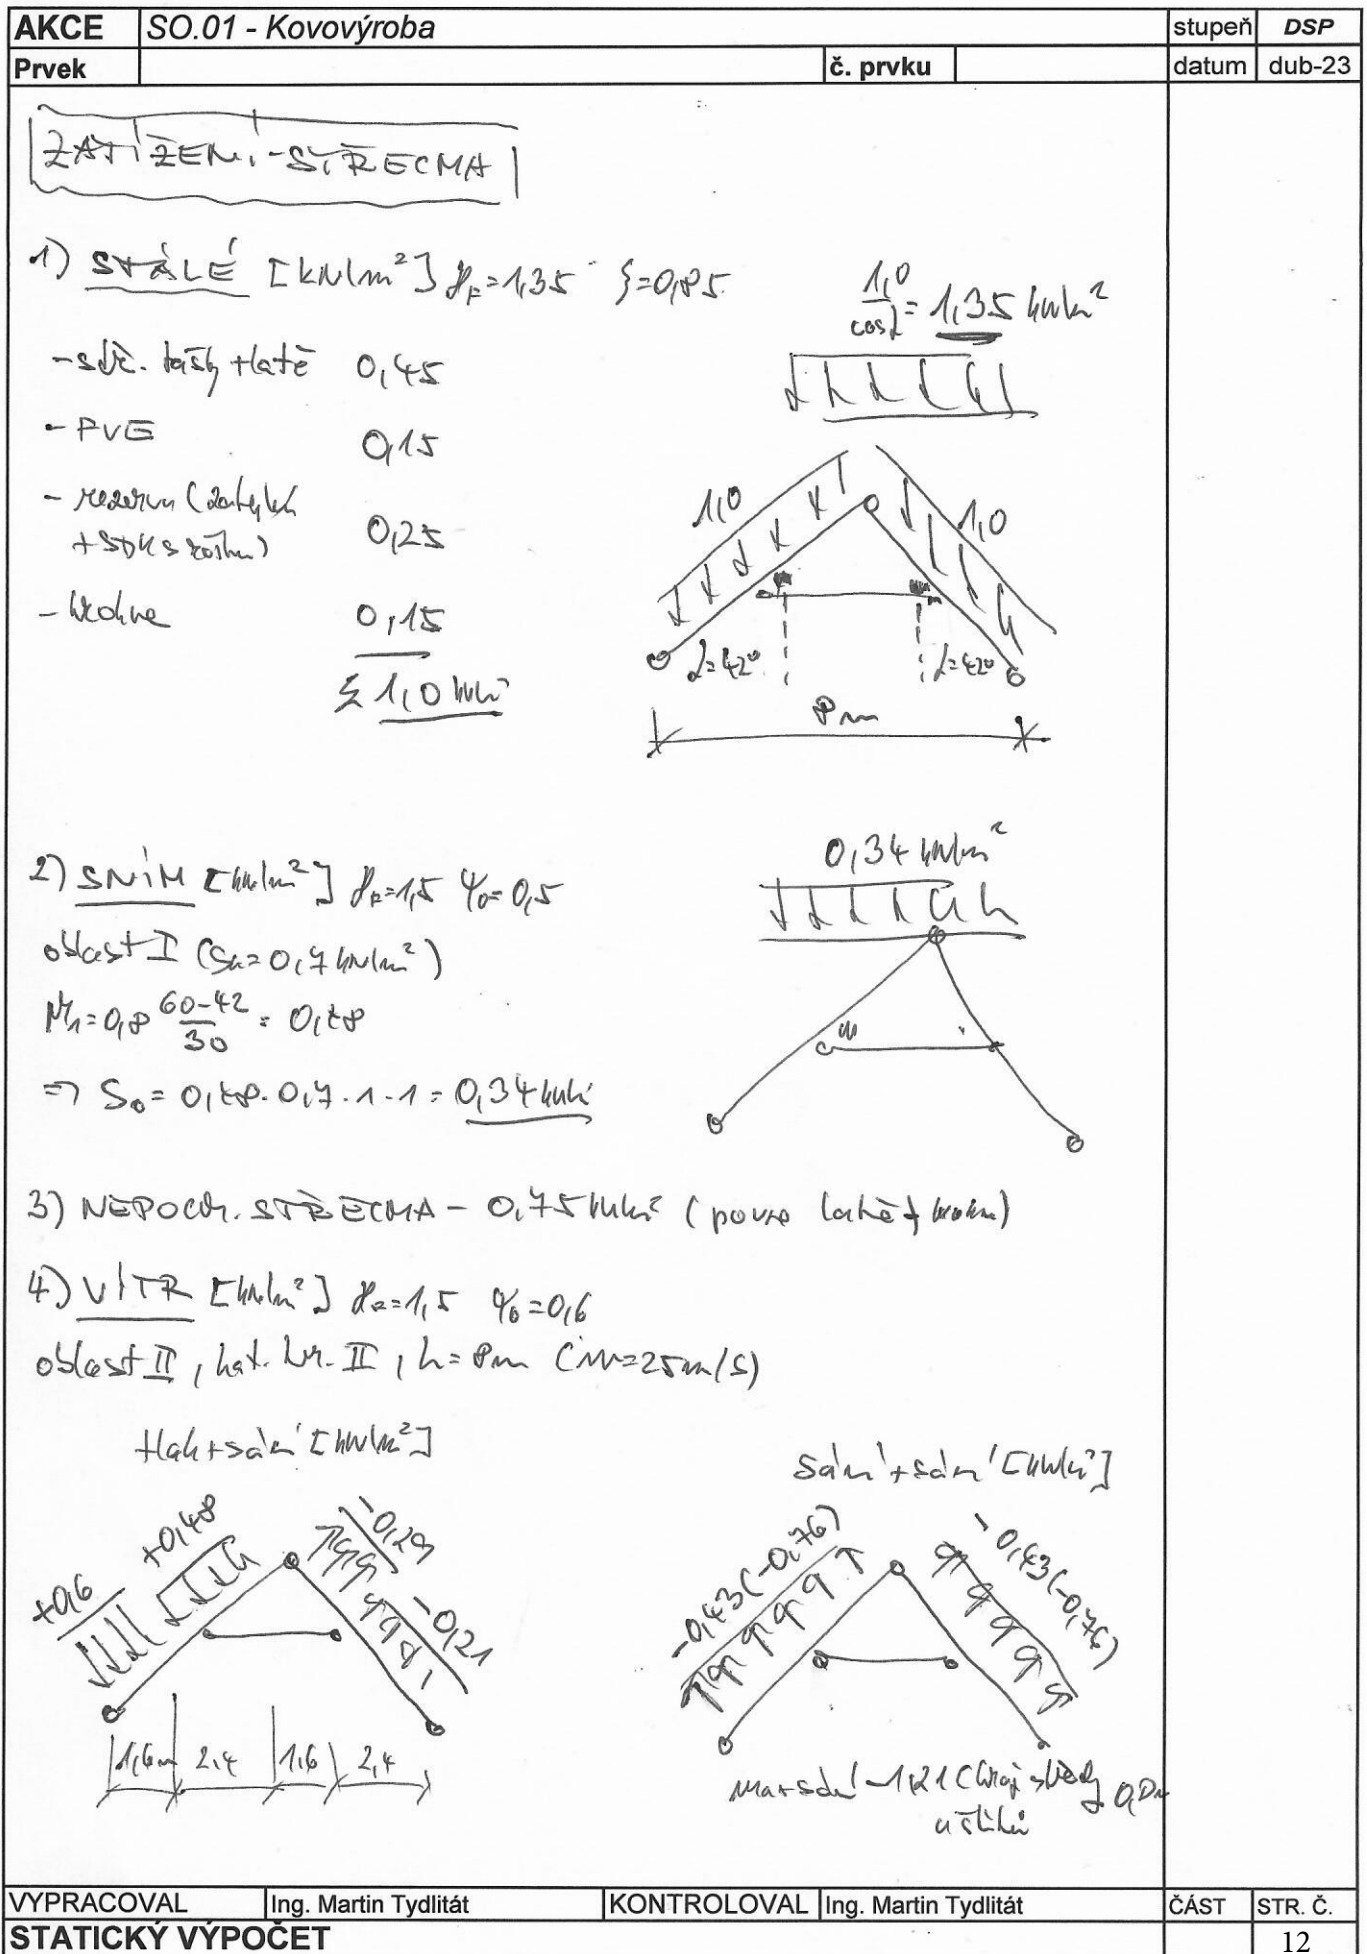 AKCE SO.01 - Kovovýroba stupeň DSP
Prvek č. prvku datum dub-23
ZATÍŽENÍ - STŘECHA
1) STÁLÉ [kN/m²] γF=1,35 ξ=0,85
1,0/cosα = 1,35 kN/m²
- stř. tašky + latě 0,45
- FVE 0,15
- rezerva (zateplení + SDK s roštem) 0,25
- krokve 0,15
Σ 1,0 kN/m²
1,0 1,0
α=42° α=42°
8 m
2) SNÍH [kN/m²] γF=1,5 ψ0=0,5
0,34 kN/m²
oblast I (Sk=0,7 kN/m²)
μ1=0,8 60-42/30 = 0,48
⇒ S0 = 0,48·0,7·1·1 = 0,34 kN/m²
3) NEPOCH. STŘECHA - 0,75 kN/m² (pouze latě + krokve)
4) VÍTR [kN/m²] γF=1,5 ψ0=0,6
oblast II, kat. ter. II, h=8m (w=25m/s)
tlak+sání [kN/m²]
sání+sání [kN/m²]
+0,6 +0,48 -0,29 -0,21
-0,43(-0,76) -0,43(-0,76)
1,6m 2,4 1,6 2,4
max sání -1,21 (kraj střechy
u štítu
VYPRACOVAL Ing. Martin Tydlitát KONTROLOVAL Ing. Martin Tydlitát ČÁST STR. Č.
STATICKÝ VÝPOČET 12